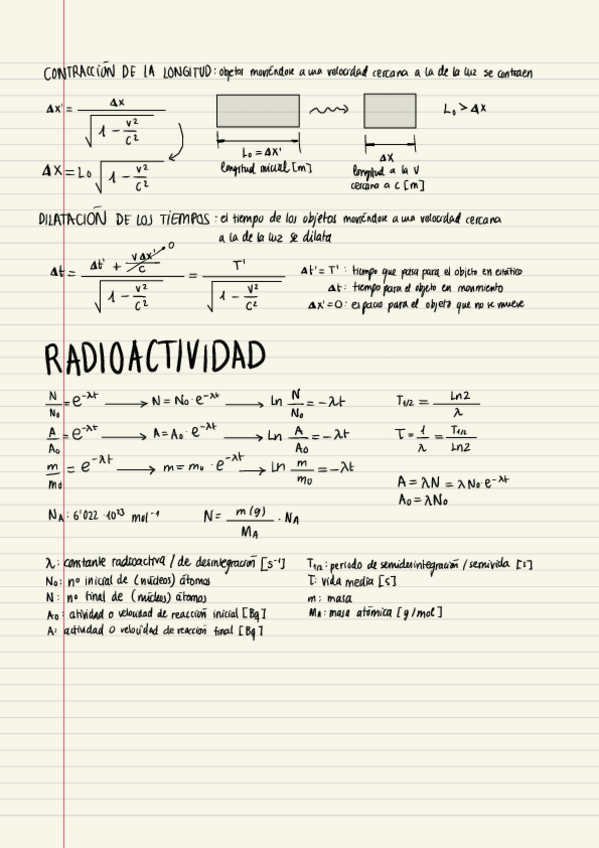 CONTRACCIÓN DE LA LONGITUD: objetos moviéndose a una velocidad cercana a la de la luz se contraen
Δx' = Δx / √(1 - v²/c²)
L₀ > Δx
L₀ = Δx'
longitud inicial [m]
Δx
longitud a la v
cercano a c [m]
Δx = L₀ √(1 - v²/c²)
DILATACIÓN DE LOS TIEMPOS: el tiempo de los objetos moviéndose a una velocidad cercana
a la de la luz se dilata
Δt = (Δt' + vΔx'/c → 0) / √(1 - v²/c²) = T' / √(1 - v²/c²)
Δt' = T': tiempo que pasa para el objeto en estático
Δt: tiempo para el objeto en movimiento
Δx' = 0: espacio para el objeto que no se mueve
RADIOACTIVIDAD
N/N₀ = e^-λt → N = N₀ · e^-λt → ln N/N₀ = -λt
T₁/₂ = Ln2/λ
A/A₀ = e^-λt → A = A₀ · e^-λt → Ln A/A₀ = -λt
τ = 1/λ = T₁/₂/Ln2
m/m₀ = e^-λt → m = m₀ · e^-λt → Ln m/m₀ = -λt
A = λN = λN₀·e^-λt
A₀ = λN₀
N_A: 6'022 · 10²³ mol⁻¹
N = m(g)/M_A · N_A
λ: constante radioactiva / de desintegración [s⁻¹]
N₀: nº inicial de (núcleos) átomos
N: nº final de (núcleos) átomos
A₀: atividad o velocidad de reacción inicial [Bq]
A: actividad o velocidad de reacción final [Bq]
T₁/₂: periodo de semidesintegración / semivida [s]
τ: vida media [s]
m: masa
M_A: masa atómica [g/mol]